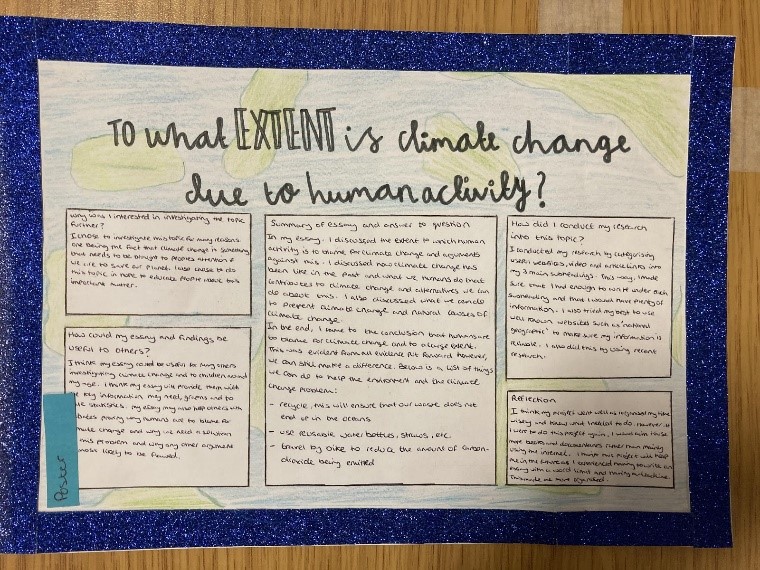 To what EXTENT is climate change
due to human activity?
Why was I interested in investigating the topic
further?
I chose to investigate this topic for many reasons
one being the fact that climate change is something
that needs to be brought to peoples attention if
we are to save our planet. I also chose to do
this topic in hope to educate people about this
important matter.
How could my essay and findings be
useful to others?
I think my essay could be useful for many others
investigating climate change and to children around
my age. I think my essay will provide them with
key information they need, graphs and to
statistics. My essay may also help others with
proving why humans are to blame for
climate change and why we need a solution
this problem and why any other argument
most likely to be flawed.
Poster
Summary of essay and answer to question
In my essay, I discussed the extent to which human
activity is to blame for climate change and arguments
against this. I discussed how climate change has
been like in the past and what we humans do that
contributes to climate change and alternatives we can
do about this. I also discussed what we can do
to prevent climate change and natural causes of
climate change.
In the end, I came to the conclusion that humans are
to blame for climate change and to a large extent.
This was evident from all evidence put forward however,
we can still make a difference. Below is a list of things
we can do to help the environment and the climate
change problem:
- recycle, this will ensure that our waste does not
end up in the oceans
- use reusable water bottles, straws, etc.
- travel by bike to reduce the amount of carbon-
dioxide being emitted
How did I conduct my research
into this topic?
I conducted my research by categorising
useful websites, video and article links into
my 3 main subheadings. This way, I made
sure that I had enough to write under each
subheading and that I would have plenty of
information. I also tried my best to use
well known websites such as 'national
geographic' to make sure my information is
reliable. I also did this by using recent
research.
Reflection
I think my project went well as I organised my time
wisely and knew what I needed to do. However, if
I were to do this project again, I would aim to use
more books and documentaries rather than mainly
using the internet. I think this project will help
me in the future as I experienced having to write an
essay with a word limit and having a deadline.
This made me more organised.